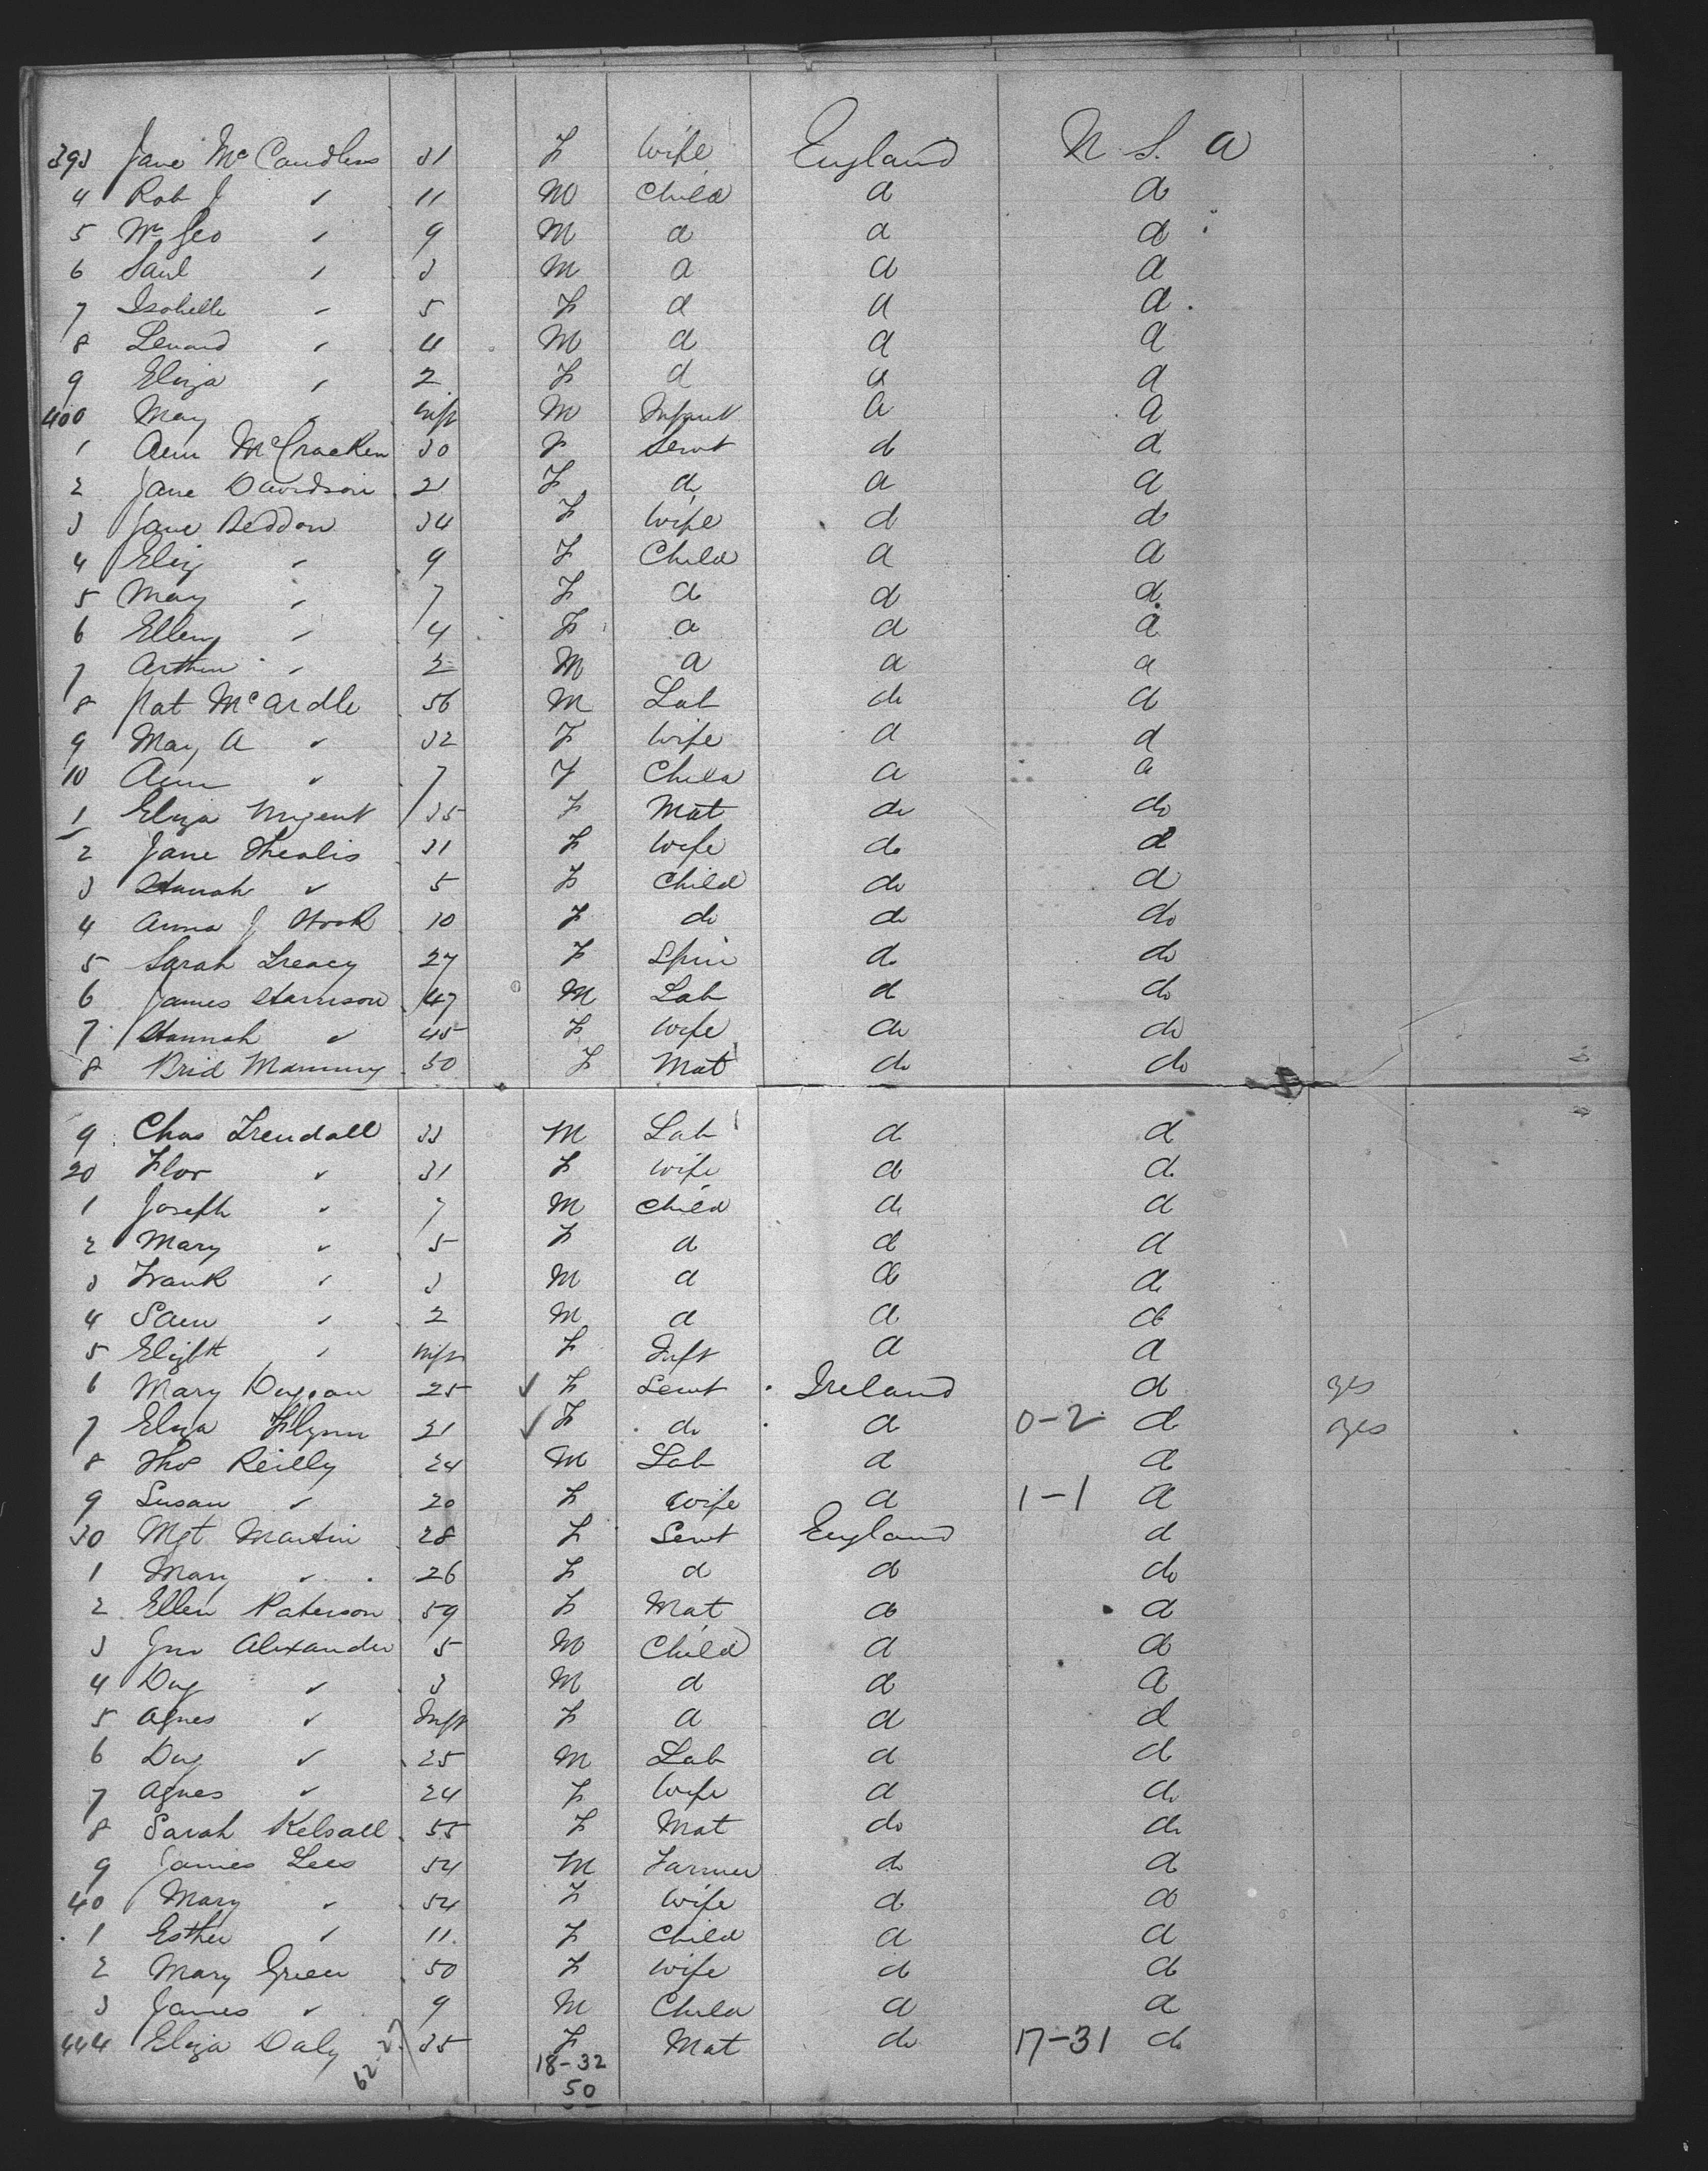 393 Jane McCandless 31 F Wife England U. S. A
4 Rob J " 11 M Child d d
5 Wm Geo " 9 M d d d
6 Saml " 3 M d d d
7 Isabelle " 5 F d d d
8 Lenard " 4 M d d d
9 Eliza " 2 F d d d
400 May " Inft M Infant d d
1 Ann McCracken 30 F Servt do d
2 Jane Davidson 21 F d d d
3 Jane Beddon 34 F Wife d d
4 Eliz " 9 F Child d d
5 May " 7 F d d d
6 Ellen " 4 F d d d
7 Arthur " 2 M d d d
8 Pat McArdle 56 M Lab do d
9 Mary A " 32 F Wife d d
10 Ann " 7 F Child d d
1 Eliza Nugent 35 F Mat do do
2 Jane Thealis 31 F Wife do d
3 Hanah " 5 F Child do d
4 Anna J Hook 10 F do do do
5 Sarah Treacy 27 F Spin do do
6 James Harrison 47 M Lab d do
7 Hannah " 45 F Wife do do
8 Brid Manning 50 F Mat do do
9 Chas Trendall 33 M Lab d d
20 Flor " 31 F Wife d d
1 Joseph " 7 M Child do d
2 Mary " 5 F d d d
3 Frank " 3 M d d d
4 Sam " 2 M d d d
5 Elizbth " Inft F Inft d d
6 Mary Duggan 25 ✓ F Servt Ireland d yes
7 Eliza Flynn 21 ✓ F do d 0-2 d yes
8 Thos Reilly 24 M Lab d d
9 Susan " 20 F Wife d 1-1 d
30 Mgt Martin 28 F Servt England d
1 Mary " 26 F d d do
2 Ellen Paterson 59 F Mat d d
3 Jno Alexander 5 M Child d d
4 Dug " 3 M d d d
5 Agnes " Inft F d d d
6 Dug " 25 M Lab d d
7 Agnes " 24 F Wife d do
8 Sarah Kelsall 55 F Mat do do
9 James Lees 54 M Farmer do d
40 Mary " 54 F Wife d d
1 Esther " 11 F Child d d
2 Mary Green 50 F Wife d d
3 James " 9 M Child d d
444 Eliza Daly 35 F Mat do 17-31 do
18-32
50